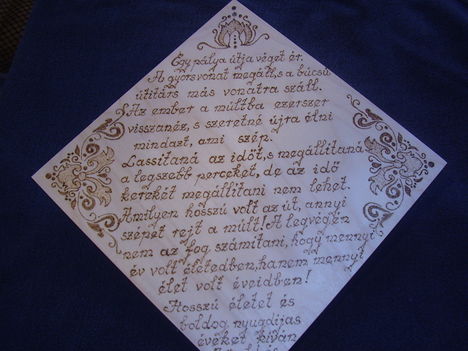 Egy pálya útja véget ér.
A gyorsvonat megáll, s a búcsú
útitárs más vonatra száll.
Az ember a múltba ezerszer
visszanéz, s szeretné újra élni
mindazt, ami szép.
Lassítaná az időt, s megállítaná
a legszebb perceket, de az idő
kerekét megállítani nem lehet.
Amilyen hosszú volt az út, annyi
szépet rejt a múlt! A legvégén
nem az fog számítani, hogy mennyi
év volt életedben, hanem mennyi
élet volt éveidben!
Hosszú életet és
boldog nyugdíjas
éveket kíván